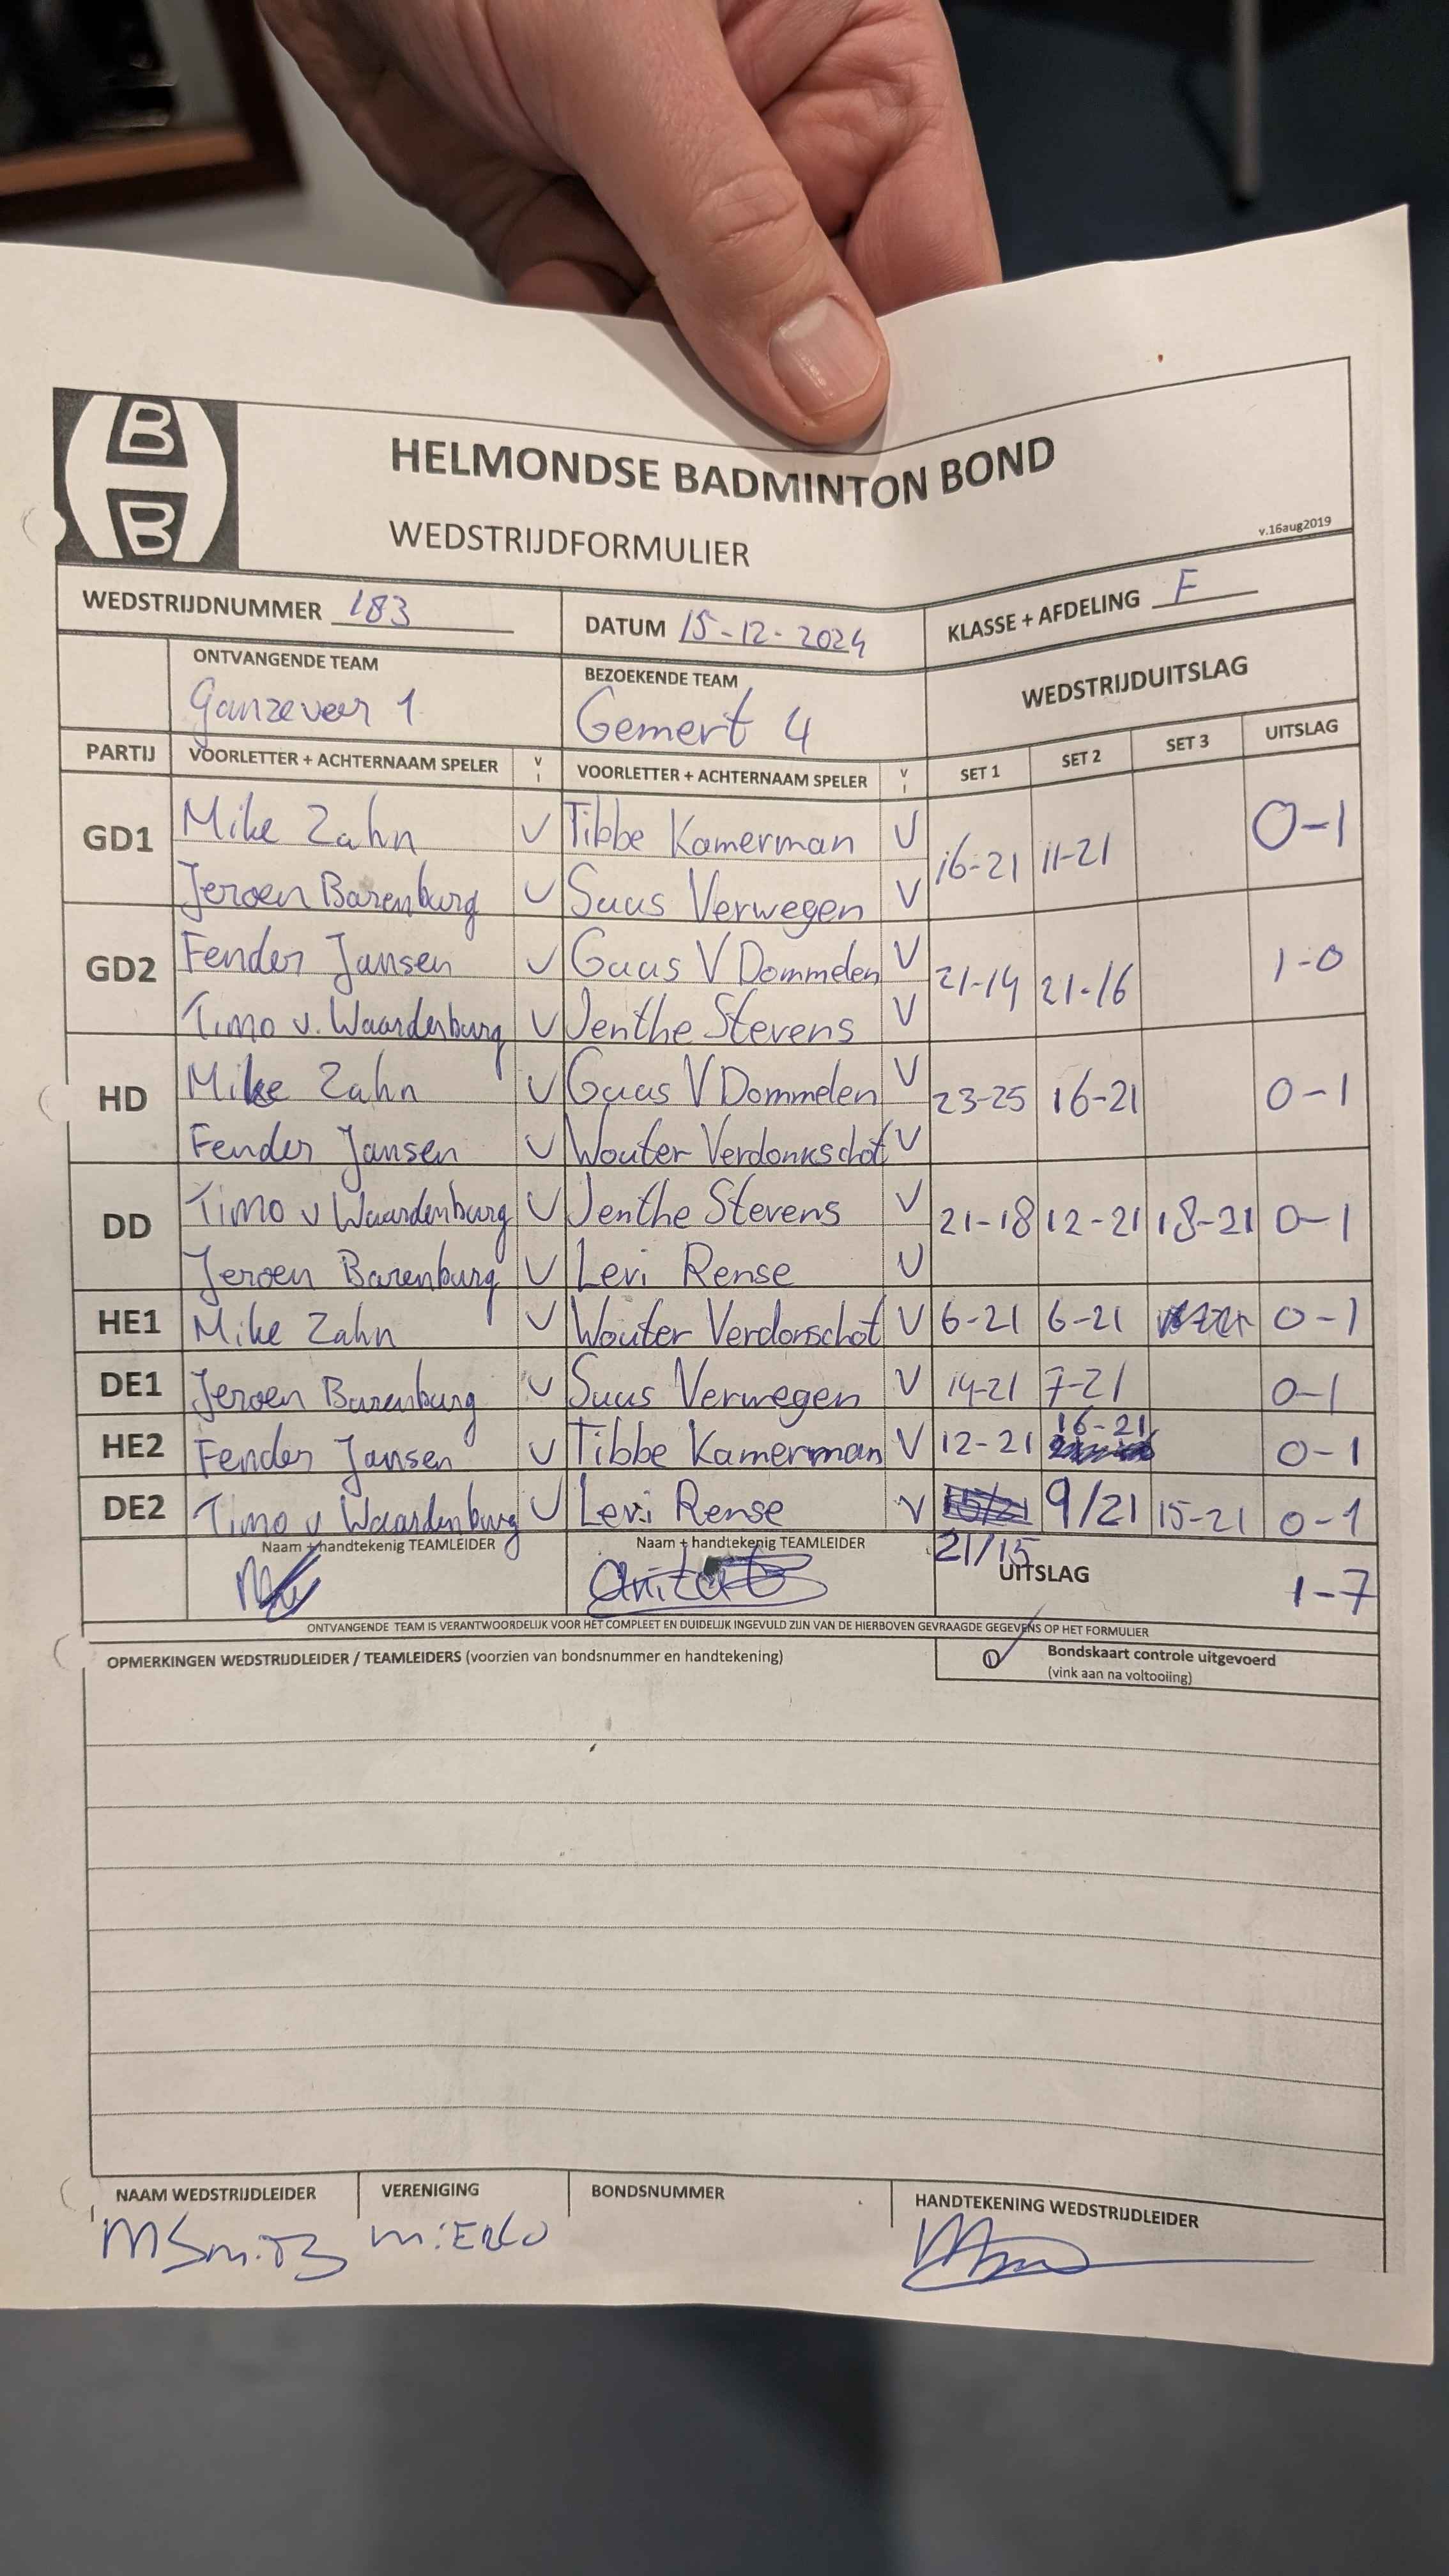 B
B
HELMONDSE BADMINTON BOND
WEDSTRIJDFORMULIER
v.16aug2019
WEDSTRIJDNUMMER 183 DATUM 15-12-2024 KLASSE + AFDELING F
ONTVANGENDE TEAM BEZOEKENDE TEAM WEDSTRIJDUITSLAG
Ganzeveer 1 Gemert 4
PARTIJ VOORLETTER + ACHTERNAAM SPELER V I VOORLETTER + ACHTERNAAM SPELER V I SET 1 SET 2 SET 3 UITSLAG
GD1 Mike Zahn V Tibbe Kamerman V 16-21 11-21 0-1
Jeroen Barenburg V Suus Verwegen V
GD2 Fender Jansen V Guus V Dommelen V 21-14 21-16 1-0
Timo v. Waardenburg V Jenthe Stevens V
HD Mike Zahn V Guus V Dommelen V 23-25 16-21 0-1
Fender Jansen V Wouter Verdonkschot V
DD Timo v Waardenburg V Jenthe Stevens V 21-18 12-21 18-21 0-1
Jeroen Barenburg V Levi Rense V
HE1 Mike Zahn V Wouter Verdonschot V 6-21 6-21 0-1
DE1 Jeroen Barenburg V Suus Verwegen V 14-21 7-21 0-1
HE2 Fender Jansen V Tibbe Kamerman V 12-21 16-21 0-1
DE2 Timo v Waardenburg V Levi Rense V 9/21 15-21 0-1
21/15
Naam + handtekenig TEAMLEIDER Naam + handtekenig TEAMLEIDER UITSLAG 1-7
ONTVANGENDE TEAM IS VERANTWOORDELIJK VOOR HET COMPLEET EN DUIDELIJK INGEVULD ZIJN VAN DE HIERBOVEN GEVRAAGDE GEGEVENS OP HET FORMULIER
OPMERKINGEN WEDSTRIJDLEIDER / TEAMLEIDERS (voorzien van bondsnummer en handtekening) Bondskaart controle uitgevoerd
(vink aan na voltooiing)
NAAM WEDSTRIJDLEIDER VERENIGING BONDSNUMMER HANDTEKENING WEDSTRIJDLEIDER
MSmitz MiERLO